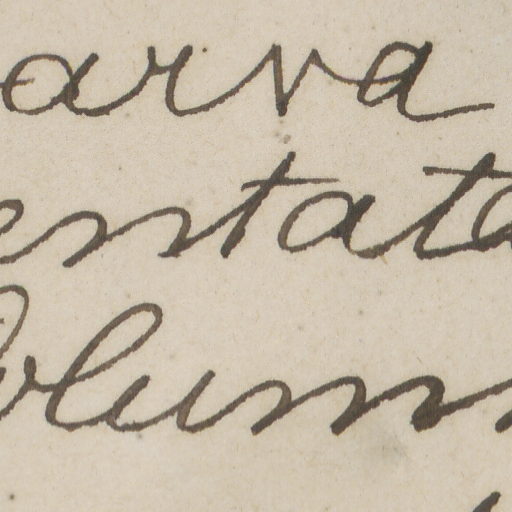 arva
entata
Colum